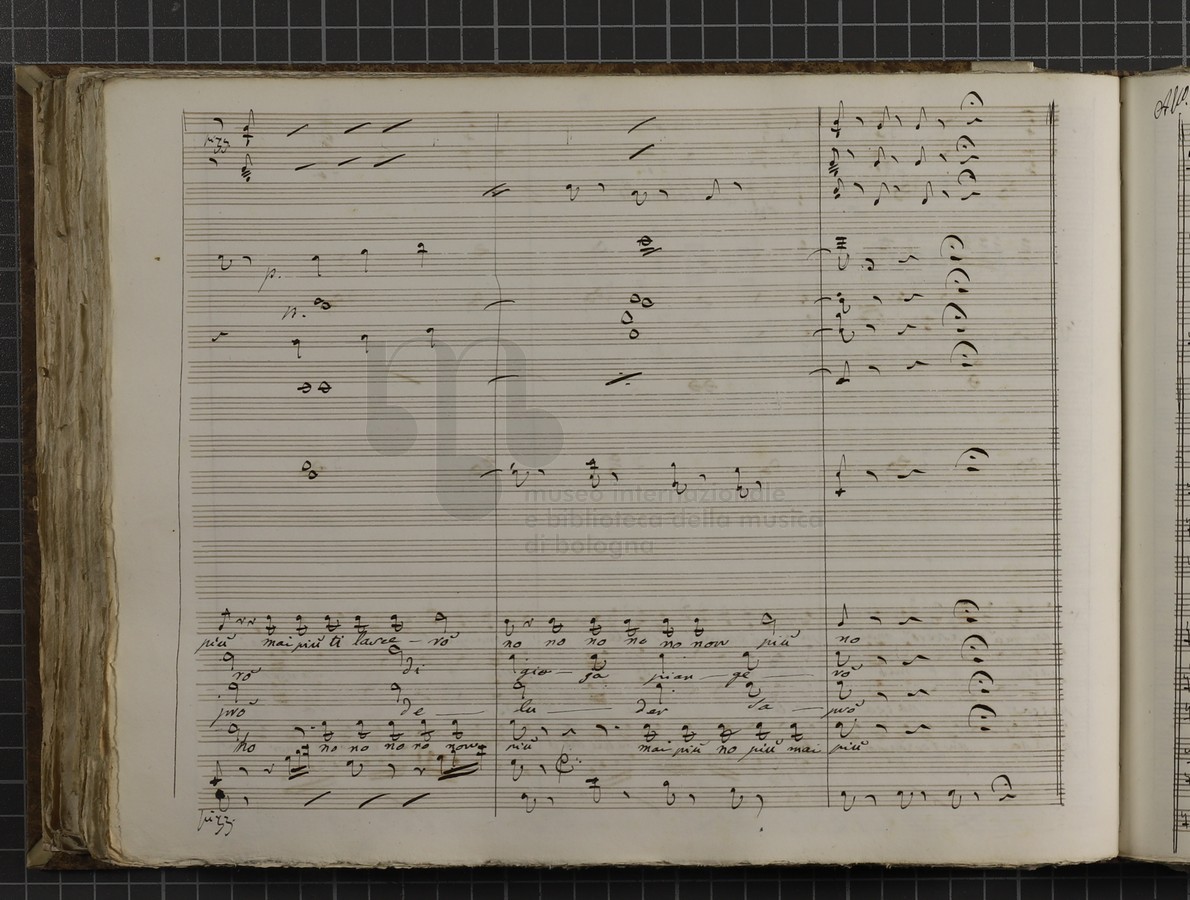 All.o
pizz
p.
p.
museo internazionale
e biblioteca della musica
di bologna
più mai più ti lasce - rò no no no no no non più no
rò di gio - ja pian - ge - rò
prò de - lu - der sa - prò
ho no no no no non più mai più no più mai più
pizz: